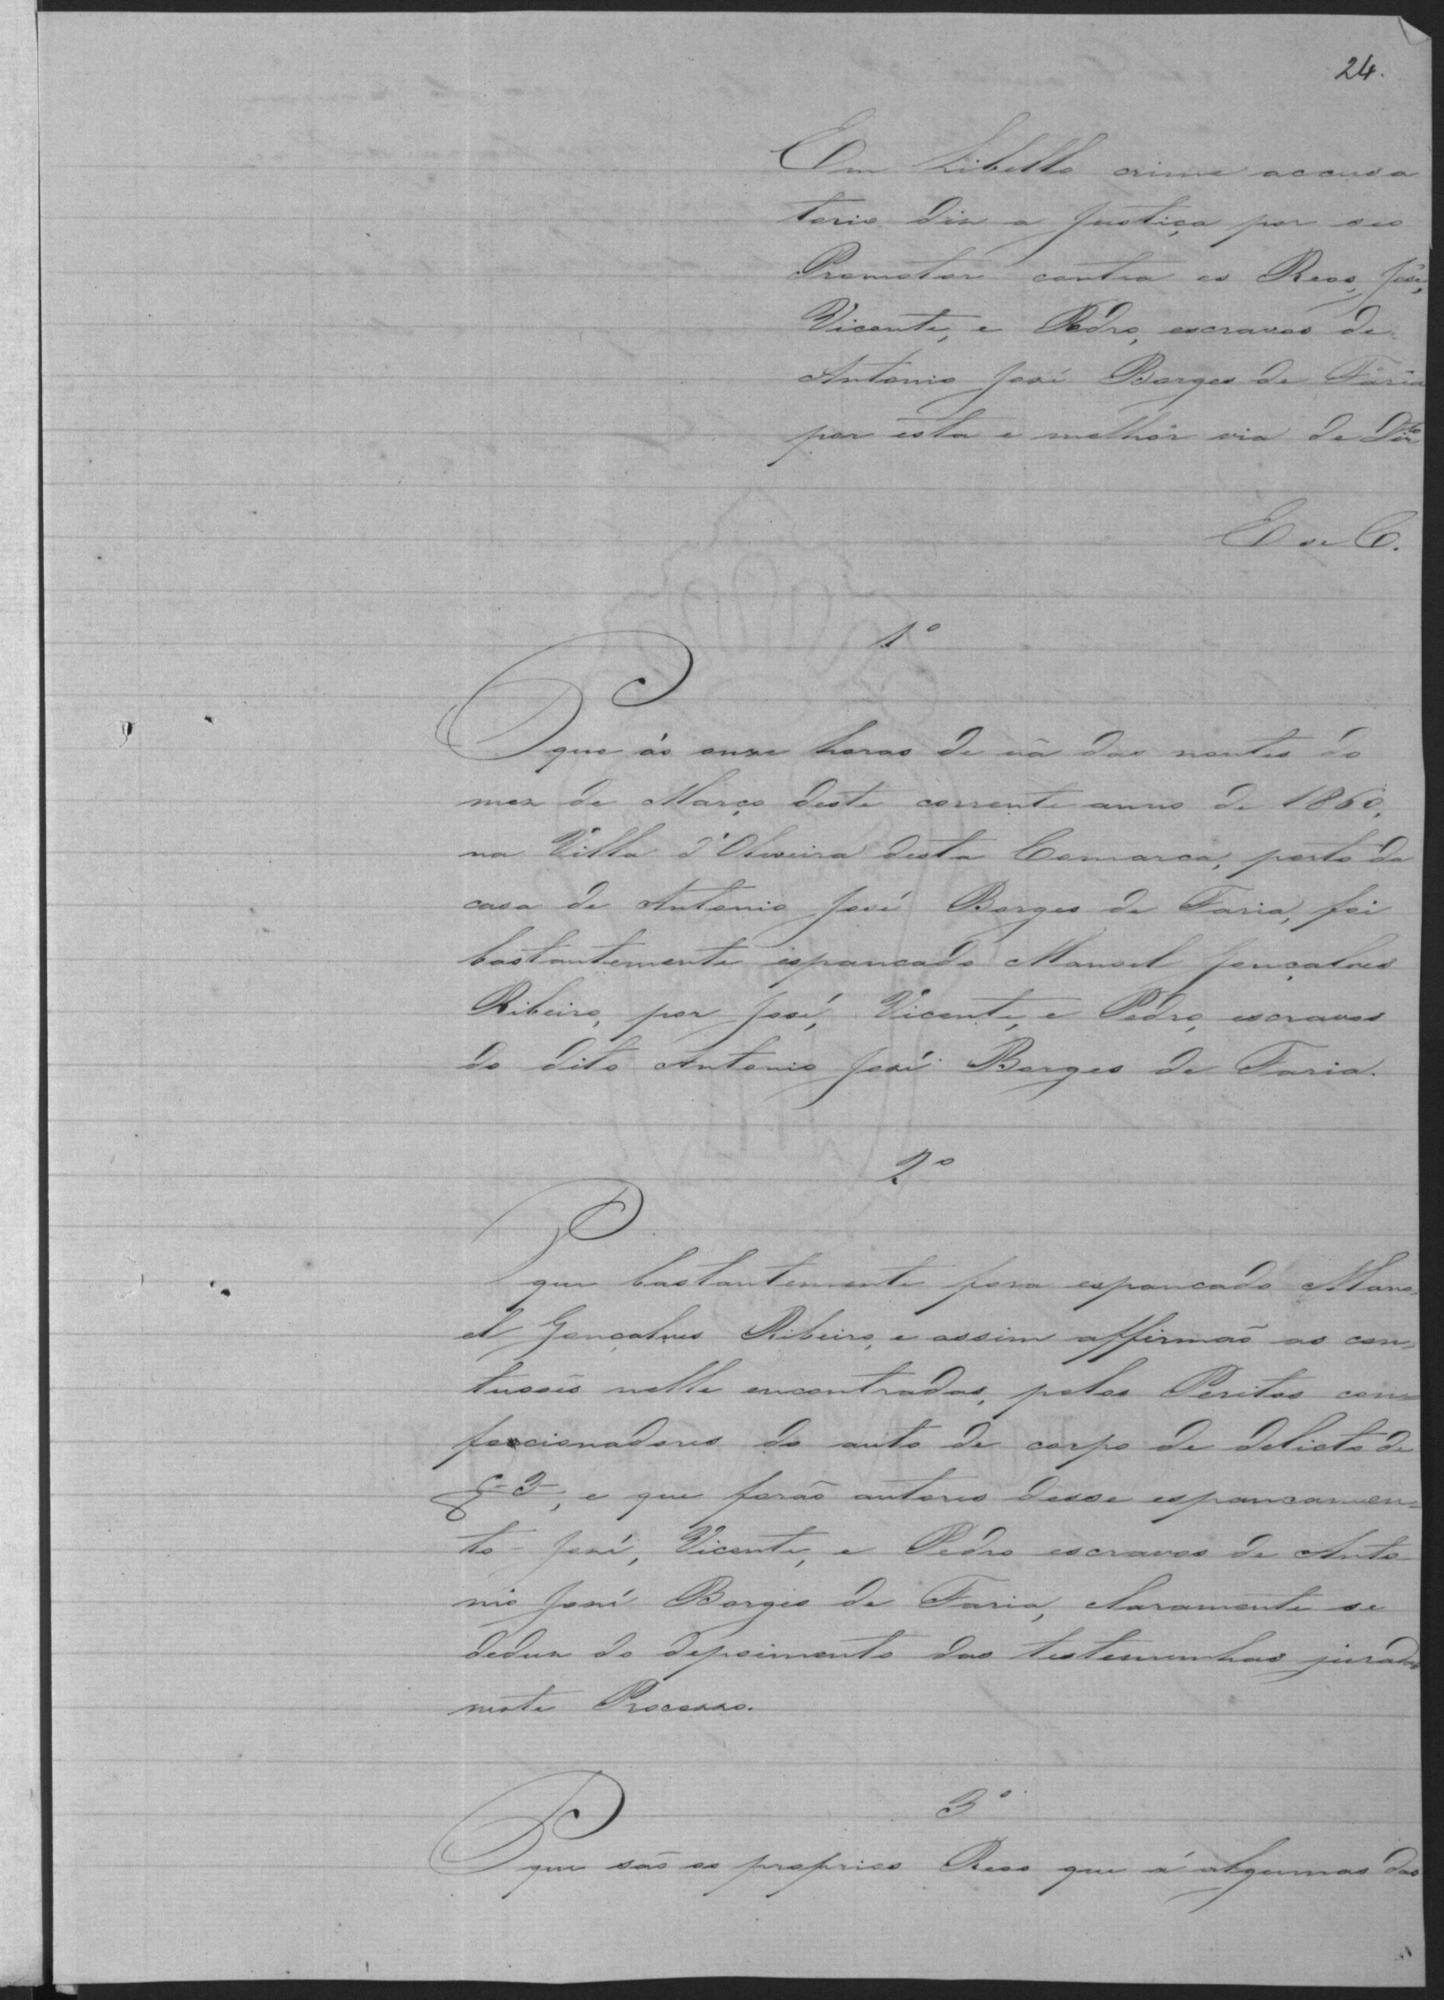 24.
Em Libello crime accusa
torio diz a Justiça por seo
Promotor contra os Reos, José,
Vicente, e Pedro, escravos de
Antonio José Borges de Faria
por esta e melhor via de Dirto
E se C.
1º
P
que ás onze horas de uã das noutes do
mez de Março deste corrente anno de 1860,
na Villa d'Oliveira desta Comarca, perto da
casa de Antonio José Borges de Faria, foi
bastantemente espancado Manoel Gonçalves
Ribeiro, por José, Vicente, e Pedro, escravos
do dito Antonio José Borges de Faria.
2º
P
que bastantemente fora espancado Mano
el Gonçalves Ribeiro, e assim affirmão as con-
tusoēs nelle encontradas, pelos Peritos con=
feccionadores do auto de corpo de delicto de
f 3, e que forão autores desse espancamen=
to - José, Vicente, e Pedro escravos de Anto
nio José Borges de Faria, claramente se
deduz do depoimento das testemunhas juradas
neste Processo.
3º
P
que são os proprios Reos que á algumas das